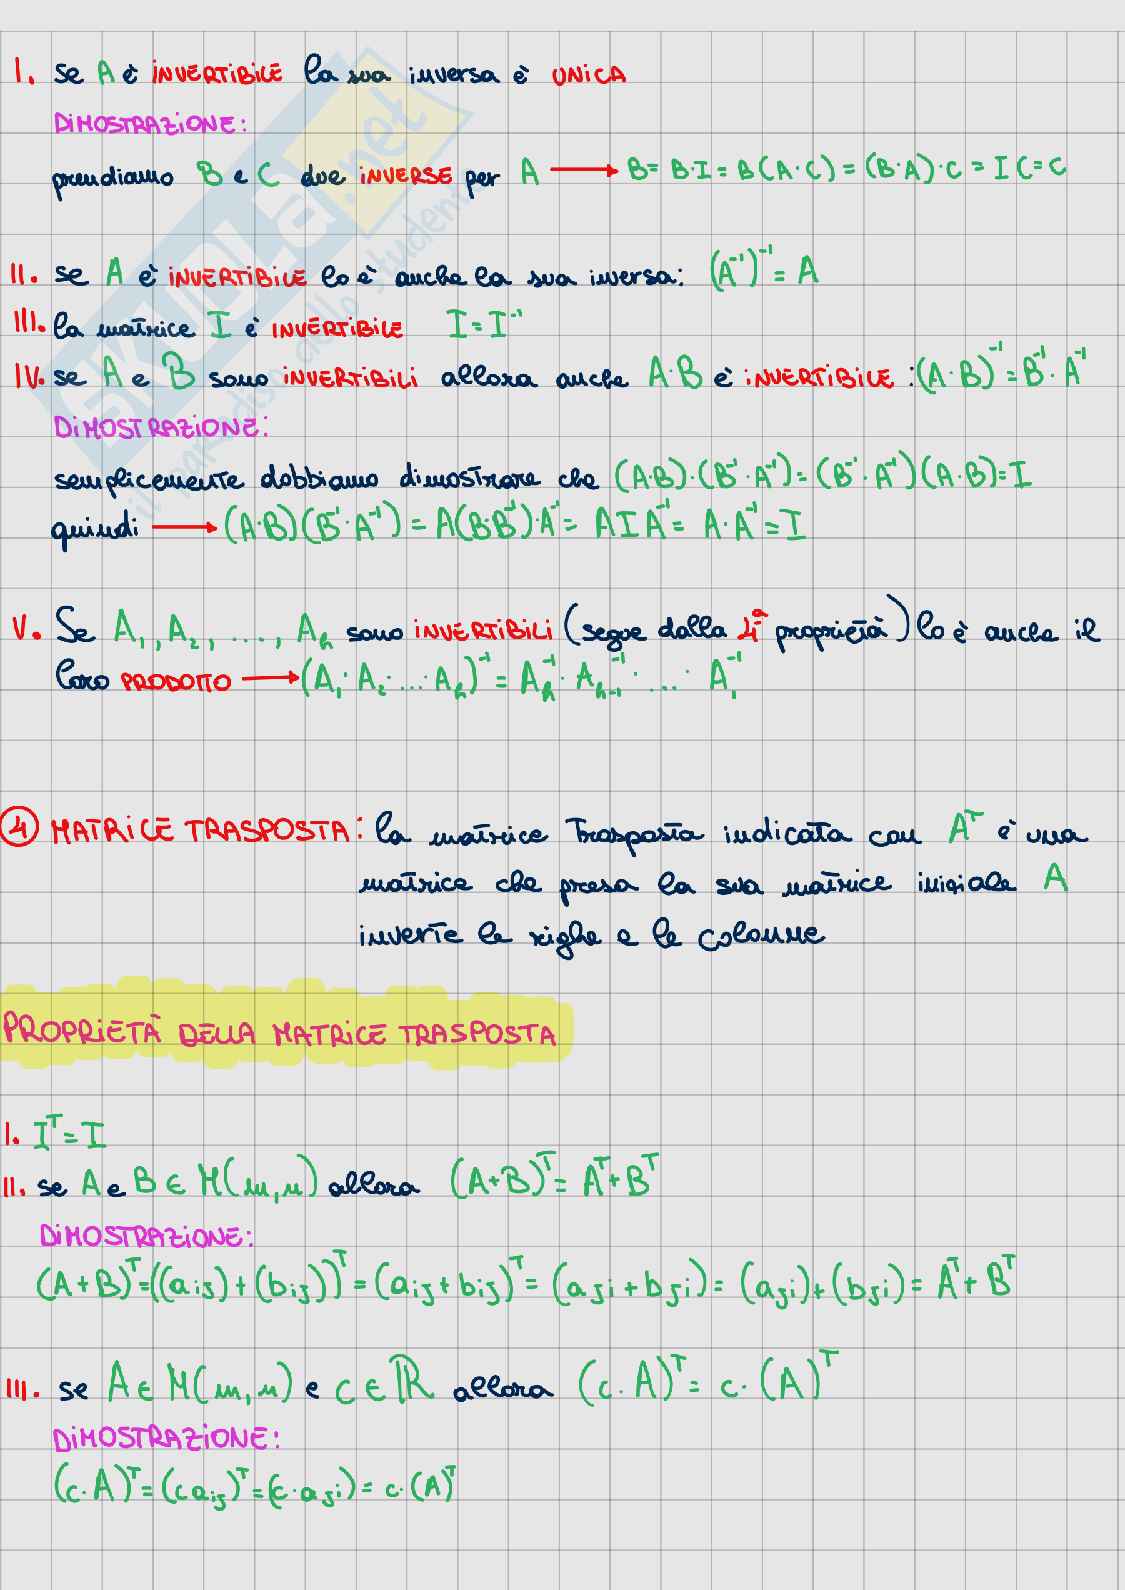 I. se A è INVERTIBILE la sua inversa è UNICA
DIMOSTRAZIONE:
prendiamo B e C due INVERSE per A → B = B·I = B(A·C) = (B·A)·C = I C = C
II. se A è INVERTIBILE lo è anche la sua inversa: (A⁻¹)⁻¹ = A
III. la matrice I è INVERTIBILE I = I⁻¹
IV. se A e B sono INVERTIBILI allora anche A·B è INVERTIBILE : (A·B)⁻¹ = B⁻¹·A⁻¹
DIMOSTRAZIONE:
semplicemente dobbiamo dimostrare che (A·B)·(B⁻¹·A⁻¹) = (B⁻¹·A⁻¹)(A·B) = I
quindi → (A·B)(B⁻¹·A⁻¹) = A(B·B⁻¹)·A⁻¹ = A I A⁻¹ = A·A⁻¹ = I
V. Se A₁, A₂, ..., Aₕ sono INVERTIBILI (segue dalla 4ª proprietà) lo è anche il
loro PRODOTTO → (A₁·A₂·...·Aₕ)⁻¹ = Aₕ⁻¹·Aₕ₋₁⁻¹·...·A₁⁻¹
④ MATRICE TRASPOSTA: la matrice Trasposta indicata con Aᵀ è una
matrice che presa la sua matrice iniziale A
inverte le righe e le colonne
PROPRIETÀ DELLA MATRICE TRASPOSTA
I. Iᵀ = I
II. se A e B ∈ M(m,n) allora (A+B)ᵀ = Aᵀ + Bᵀ
DIMOSTRAZIONE:
(A+B)ᵀ = ((aij) + (bij))ᵀ = (aij + bij)ᵀ = (aji + bji) = (aji) + (bji) = Aᵀ + Bᵀ
III. se A ∈ M(m,n) e c ∈ ℝ allora (c·A)ᵀ = c·(A)ᵀ
DIMOSTRAZIONE:
(c·A)ᵀ = (c aij)ᵀ = (c·aji) = c·(A)ᵀ
SKUOLA.net
il paradiso dello studente